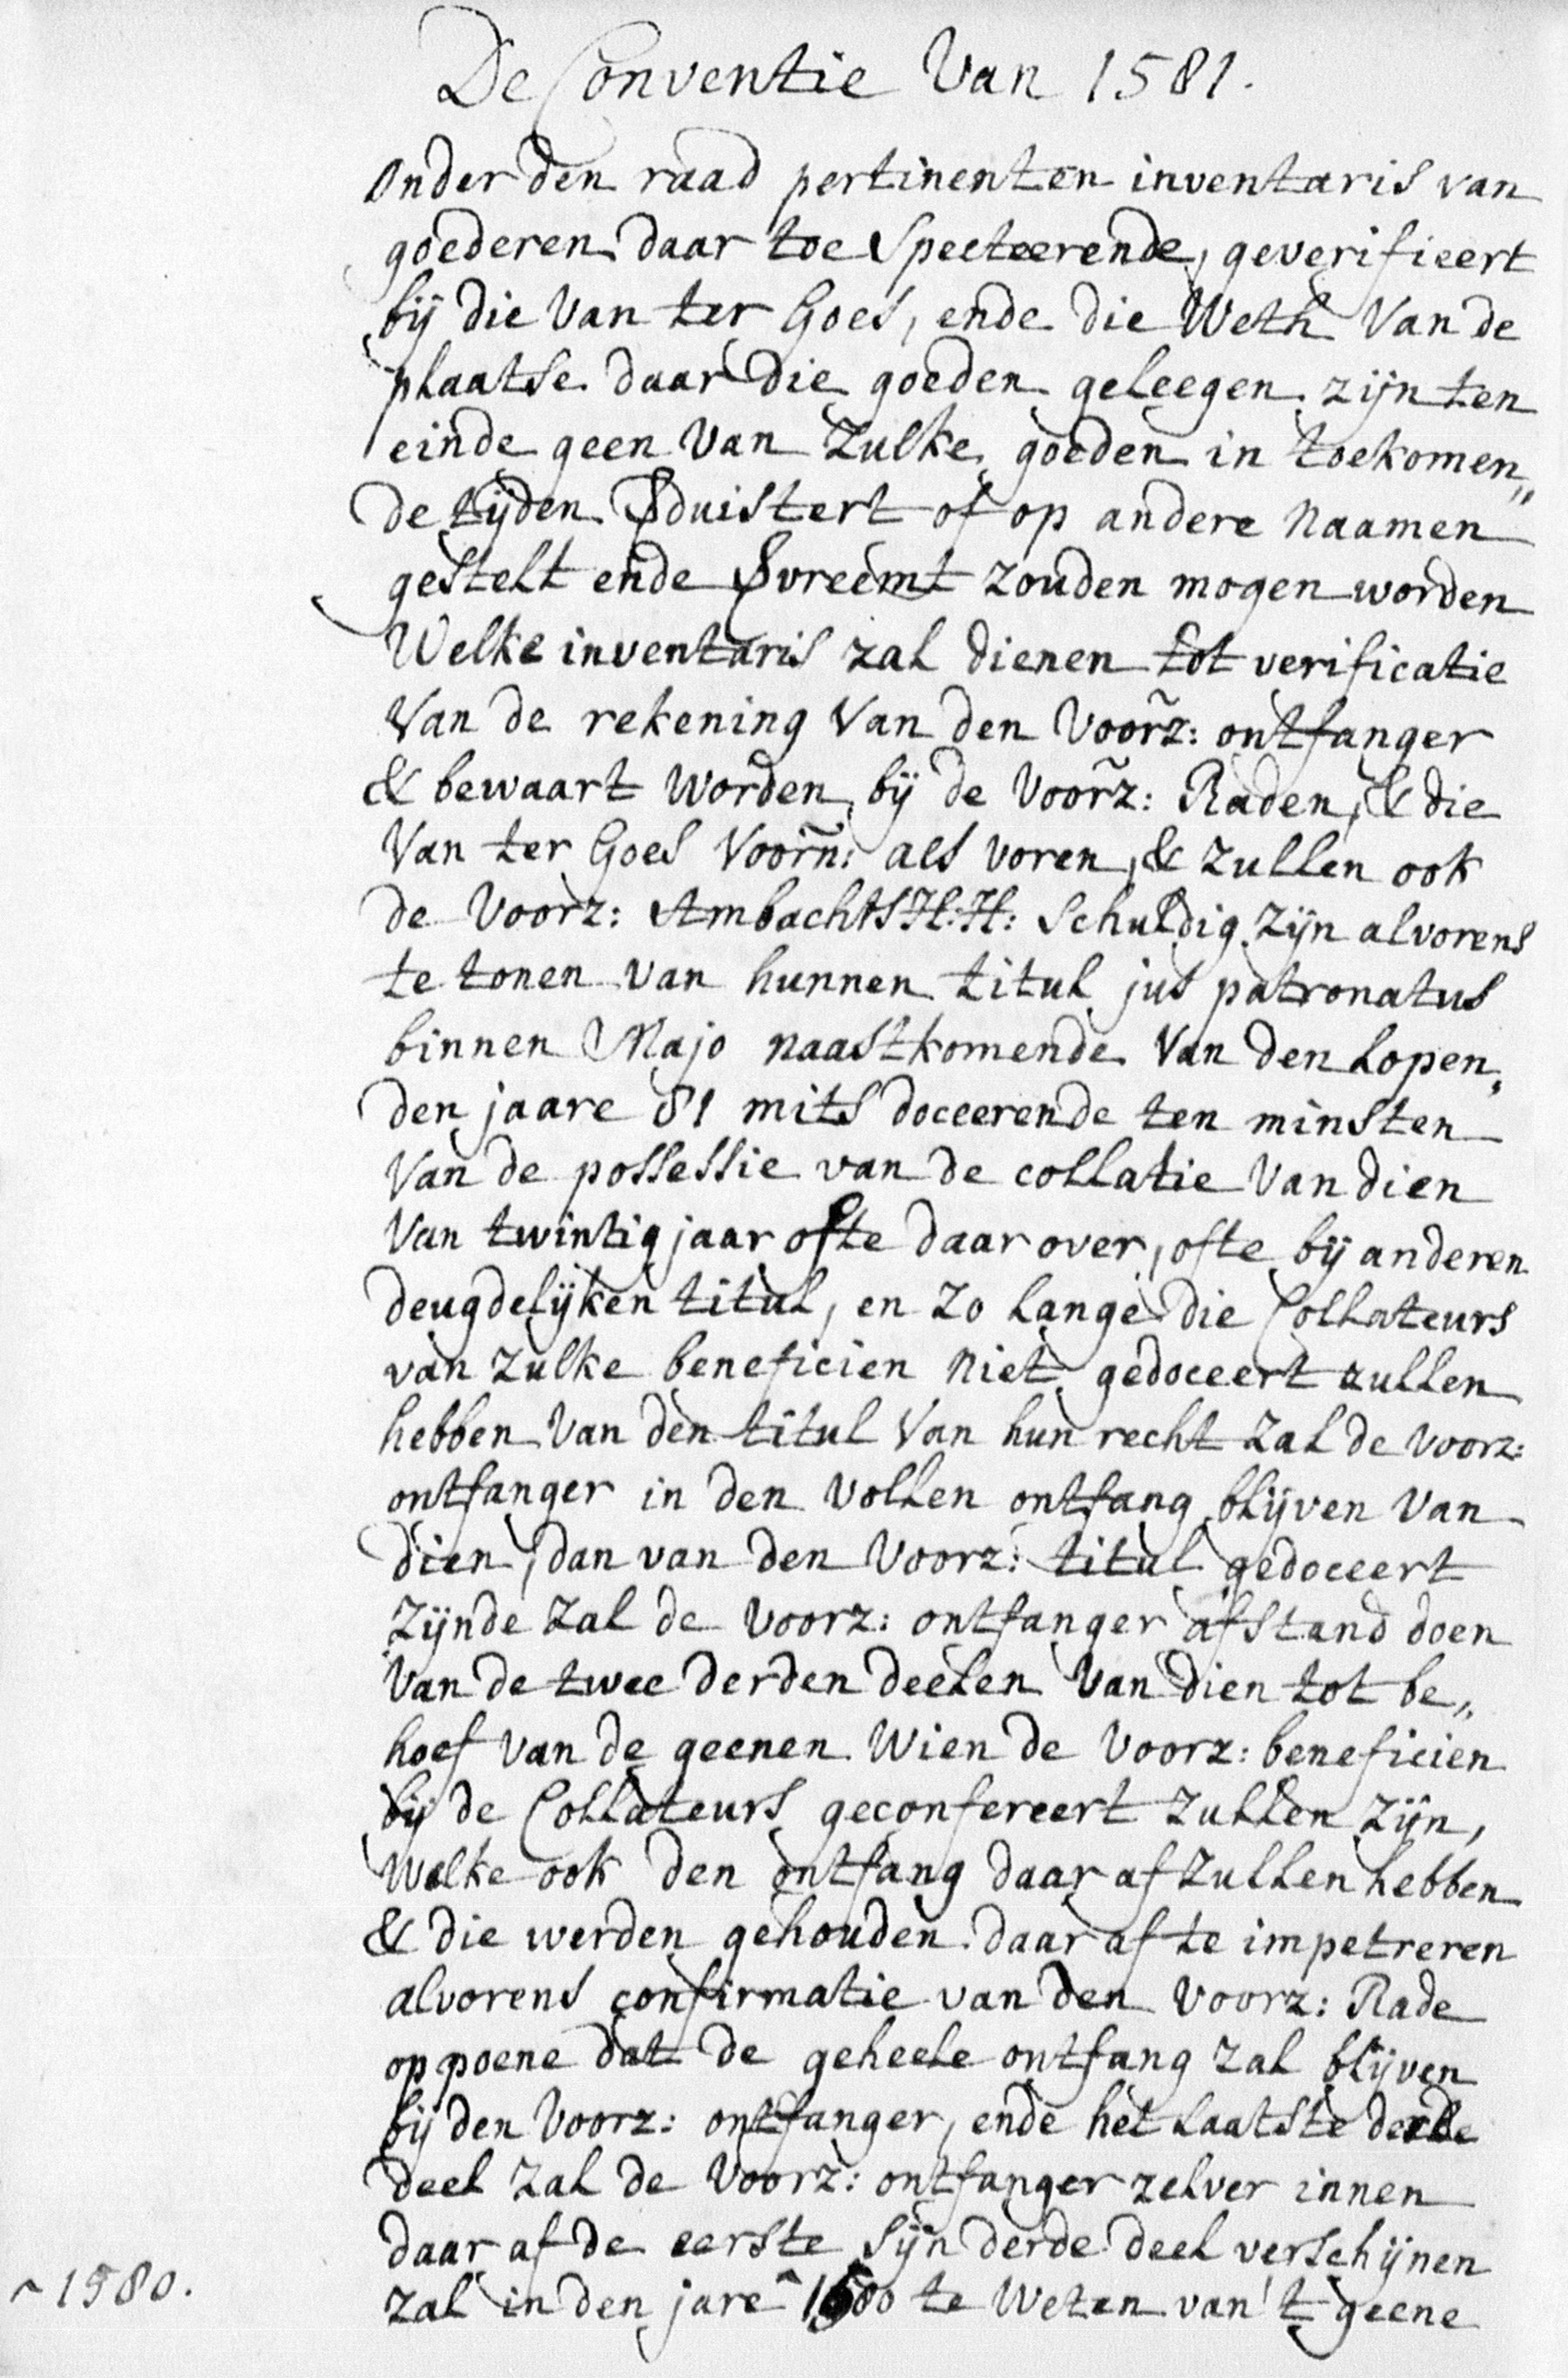 De Conventie Van 1581.
Onder den raad pertinenten inventaris van
goederen daar toe Specteerende, geverifieert
bij die Van ter Goes, ende die Weth Van de
plaatse daar die goeden geleegen zijn ten
einde geen Van Zulke goeden in toekomen„
de tijden Vduistert of op andere Naamen
gestelt ende Vvreemt zouden mogen worden
Welke inventaris zal dienen tot verificatie
Van de rekening Van den Voorz̃: ontfanger
& bewaart Worden bij de Voorz̃: Raden, & die
Van ter Goes Voorñ: als voren, & zullen ook
de Voorz: Ambachts H:H: Schuldig Zijn alvorens
te tonen van hunnen titul jus patronatus
binnen Majo naastkomende Van den Lopen„
den jaare 81 mits doceerende ten minsten
Van de possessie van de collatie Van dien
Van twintig jaar ofte daar over, ofte bij anderen
deugdelijken titul, en zo lange die Collateurs
van zulke beneficien Niet gedoceert zullen
hebben Van den titul Van hun recht zal de voorz:
ontfanger in den vollen ontfang blijven Van
dien, dan van den Voorz: titul gedoceert
Zijnde Zal de Voorz: ontfanger afstand doen
Van de twee derden deelen Van dien tot be„
hoef van de geenen Wien de Voorz: beneficien
bij de Collateurs geconfereert zullen zijn,
Welke ook den ontfang daar af Zullen hebben
& die werden gehouden daar af te impetreren
alvorens confirmatie van den Voorz: Rade
op poene dat de geheele ontfang zal blijven
bij den Voorz: ontfanger, ende het laatste derde
deel Zal de Voorz: ontfanger zelver innen
daar af de eerste Sijn derde deel verschijnen
~ 1580.
zal in den jare ~ 1580 te Weten van 't geene